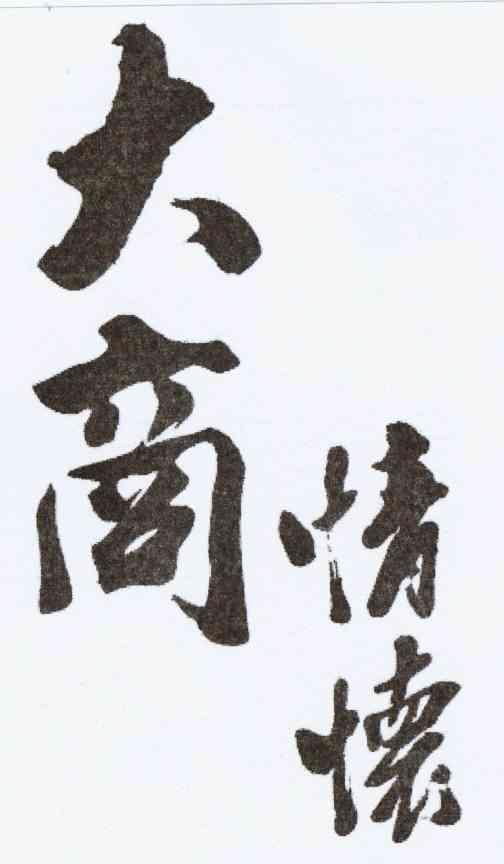 大商
情懷